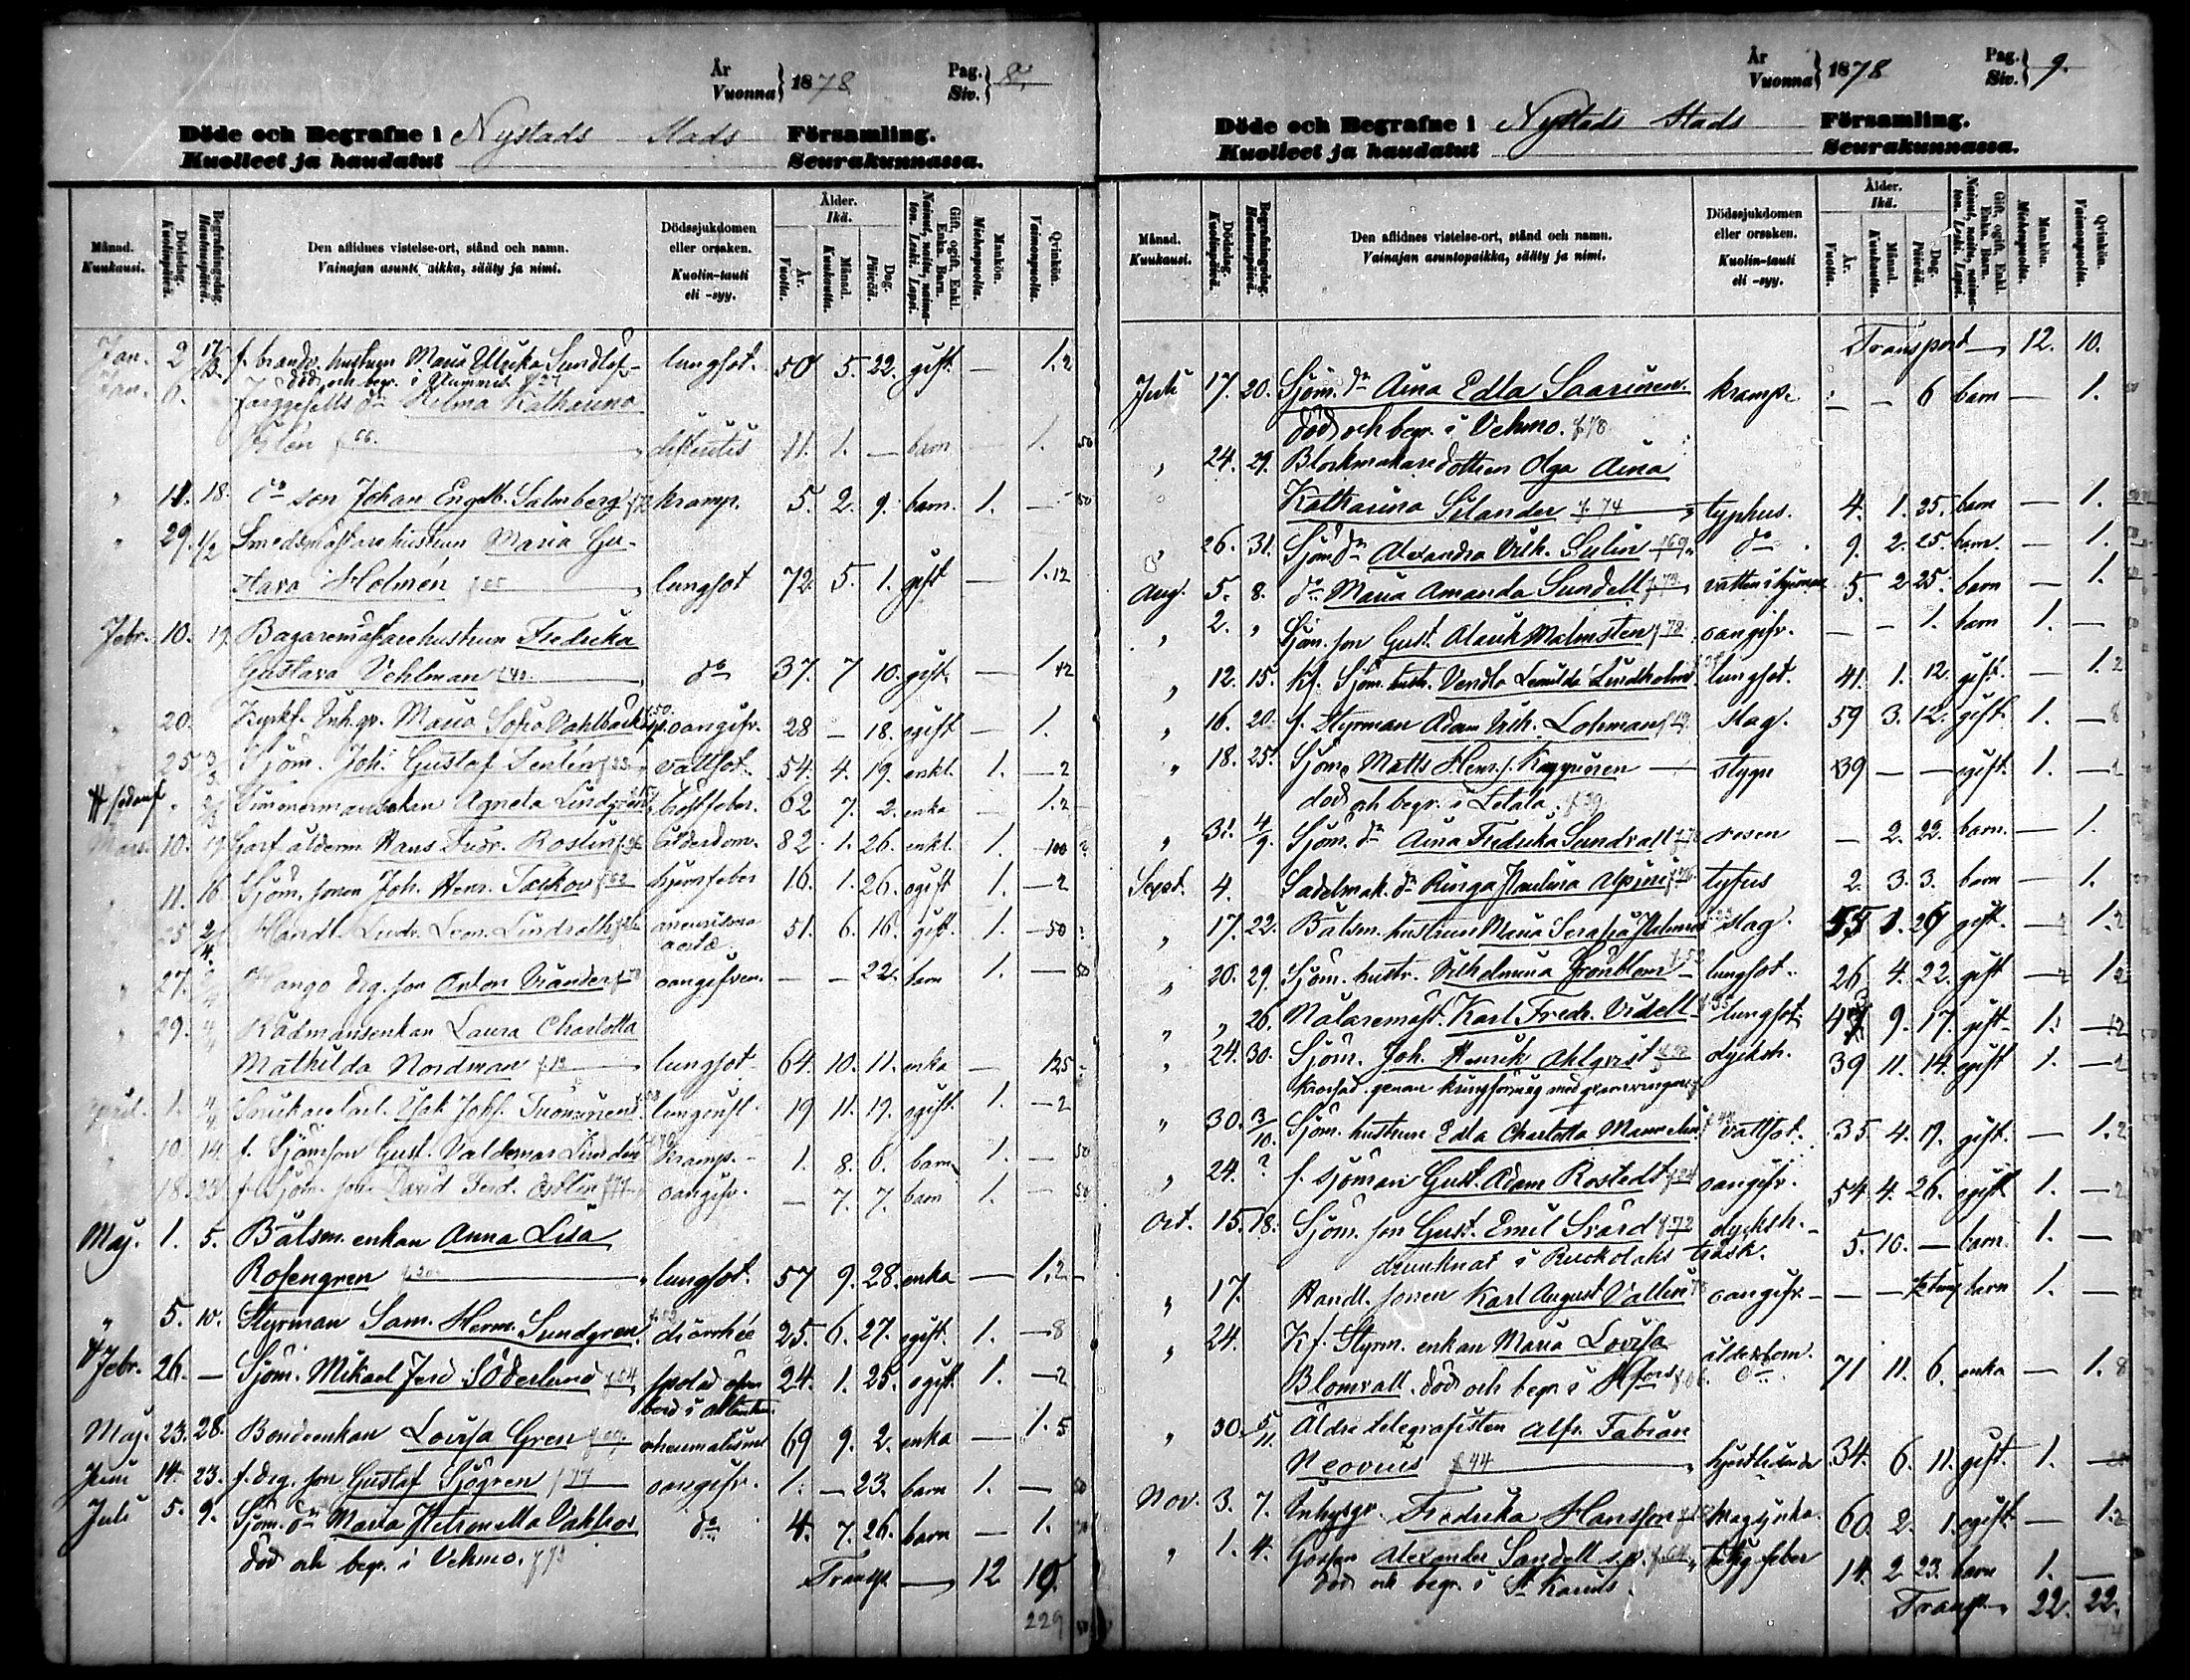 År
Vuonna } 1878 Pag.
Siv. } 8.
Döde och Begrafne i Nystads Stads Församling.
Kuolleet ja haudatut Seurakunnassa.
Månad. Kuukausi. Dödsdag. Kuolinpäivä. Begrafningsdag. Hautauspäivä. Den aflidnes vistelse-ort, stånd och namn. Vainajan asuntopaikka, sääty ja nimi. Dödssjukdomen eller orsaken. Kuolin-tauti eli -syy. Ålder. Ikä. År. Vuotta. Månad. Kuukautta. Dag. Päivää. Gift, ogift, Enkl. Enka. Barn. Nainut, naitu, naimaton. Leski. Lapsi. Mankön. Miehenpuolta. Qvinkön. Vaimonpuolta.
Jan. 2 f. brandv. hustrun Maria Ulrika Sundlöf lungsot. 50 5. 22. gift — 1. 2
död och begr. i
Färggesells dr Hilma Katharina
11. 1. — barn — 1. 50
" 11. 18. do son Johan Engelb. Salmberg kramp. 5. 2. 9. barn. 1. — 50
" 29. 1/2 Smedsmästarehustrun Maria Gu-
stava Holmén lungsot 72. 5. 1. gift — 1. 12
Febr. 10. 17. Bagaremästarehustrun Fredrika
Gustava Vehlman do 37. 7 10. gift. — 1. 12
" 20. Kyrkf. Inh.qv. Maria Sofia Vahlbäck oangifv. 28 — 18. ogift — 1.
" 25 3/3 Sjöm. Joh. Gustaf Fenlén vattsot. 54. 4. 19. enkl. 1. — 2
Timmermansenkan Agneta Lindgren bröstfeber. 62 7. 2. enka — 1. 2
Mars. 10. 17 Garf. ålderm. Hans Fredr. Roslin ålderdom. 82. 1. 26. enkl. 1. — 100
" 11. 16 Sjöm. sonen Joh. Henr. hjernfeber 16. 1. 26. ogift 1. — 2
" 25 2/4 Handl. Ludv. Leon. Lindroth aneurisma
aortæ. 51. 6. 16. gift. 1. — 50
" 27. 2/4 Hango drg. son Anton oangifven. — — 22. barn 1. — 50
" 29. 4/4 Rådmansenkan Laura Charlotta
Mathilda Nordman f 13 lungsot 64. 10. 11. enka — 1 25
April. 1. 4/4 Isak Johs. Tuominen 19 11. 19. ogift. 1. — 2
" 10. 14. f. Sjömson Gust. Valdemar Lindén kramp. 1. 8. 6. barn 1. — 50
" 18. 23. f. Sjöm. son David Ferd. Östlin f77 oangifv. — 7. 7. barn 1. — 50
Maj. 1. 5. Båtsm. enkan Anna Lisa
Rosengren f 20 lungsot. 57 9. 28. enka — 1. 2
" 5. 10. Styrman Sam. Herm. Sundgren diarrhée 25. 6. 27. ogift. 1. — 8
Febr. 26. — Sjöm. Mikael Ferd. Söderlund f 54 spolad öfver
bord i Atlanten. 24. 1. 25. ogift 1. — 2
Maj. 23. 28. Bondeenkan Lovisa Gren rheumatismus 69 9. 2. enka — 1. 5
Juni 14. 23. f. drg. son Gustaf Sjögren f 77 oangifv. 1. — 23. barn 1. — 50
Juli 5. 9. Sjöm. dr Maria Petronella Vahlroos do 4. 7. 26. barn — 1.
död och begr. i Vehmo. f 73
Transp. 12 10.
229
År
Vuonna } 1878 Pag.
Siv. } 9.
Döde och Begrafne i Nystads Stads Församling.
Kuolleet ja haudatut Seurakunnassa.
Månad. Kuukausi. Dödsdag. Kuolinpäivä. Begrafningsdag. Hautauspäivä. Den aflidnes vistelse-ort, stånd och namn. Vainajan asuntopaikka, sääty ja nimi. Dödssjukdomen eller orsaken. Kuolin-tauti eli -syy. Ålder. Ikä. År. Vuotta. Månad. Kuukautta. Dag. Päivää. Gift, ogift, Enkl. Enka. Barn. Nainut, naitu, naimaton. Leski. Lapsi. Mankön. Miehenpuolta. Qvinkön. Vaimonpuolta.
Transport 12. 10.
Juli 17. 20. Sjöm. dr Aina Edla Saarinen. kramp. — — 6 barn — 1.
död och begr. i Vehmo. f 78
" 24. 29. Blockmakaredottren Olga Aina
Katharina Silander f. 74 typhus. 4. 1. 25. barn — 1.
" 26. 31. Sjöm. dr Alexandra Vilh. Sulin f 69 do 9. 2. 25. barn. — 1.
Aug. 5. 8. do Maria Amanda Sundell f 73 vatten i hjernan 5. 2 25. barn — 1.
" 2. " Sjöm. son Gust. Alarik Malmsten f 78 oangifv. — — 1. barn 1. —
" 12. 15. Kf. Sjöm. hustr. Vendla Lemilda Lindholm lungsot. 41. 1. 12. gift. — 1. 2
" 16. 20. f. Styrman Adam Vilh. Lohman f 19 slag. 59 3. 12. gift. 1. — 8
" 18. 25. Sjöm. Matts Henr. s. styng 39 — — ogift. 1. — 2
död och begr. i Letala. f 39
" 31. 4/9. Sjöm. dr Aina Fredrika Sundvall f 78 rosen — 2. 22. barn. — 1.
Sept. 4. Sadelmak. dr Ringa Paulina Alpini f 76 tyfus 2. 3. 3. barn — 1.
" 17. 22. Båtsm. hustrun Maria Serafia slag. 55 1. 26 gift. — 1. 2
" 20. 29. Sjöm. hustr. Vilhelmina Grönblom lungsot. 26 4. 22. gift — 1. 2
" " 26. Målaremäst. Karl Fredr. Videll lungsot. 9. 17. gift. 1. — 12
" 24. 30. Sjöm. Joh. Henrik Ahlqvist olycksh. 39 11. 14. ogift 1. — 2
" 30. 3/10. Sjöm. hustrun Edla Charlotta vattsot. 35 4. 17. gift. — 1. 2
" 24. ? f. sjöman Gust. Adam Rostedt f 24 oangifv. 54 4. 26. ogift 1. — 2
Oct. 15. 18. Sjöm. son Gust. Emil Svärd f 72 olycksh. 5. 10. — barn. 1. —
drunknat i Ruokolaks träsk.
" 17. Handl. sonen Karl August Vallin 78 oangifv. — — barn 1. —
" 24. Kf. Styrm. enkan Maria Lovisa
Blomvall. död och begr. i Hfors ålderdom. 71 11. 6. enka — 1. 8
" 30. 5/11. Äldre telegrafisten Alfr. Fabian
Neovius f 44 hjertlidande 34. 6. 11. gift. 1. —
Nov. 3. 7. Inhysqv. Fredrika Hansson magsjuka. 60. 2. 1. ogift — 1. 2
" 1. 4. Gossen Alexander Sandell feber 14. 2 23. barn 1. —
död och begr. i St. Karins.
Transp. 22. 22.